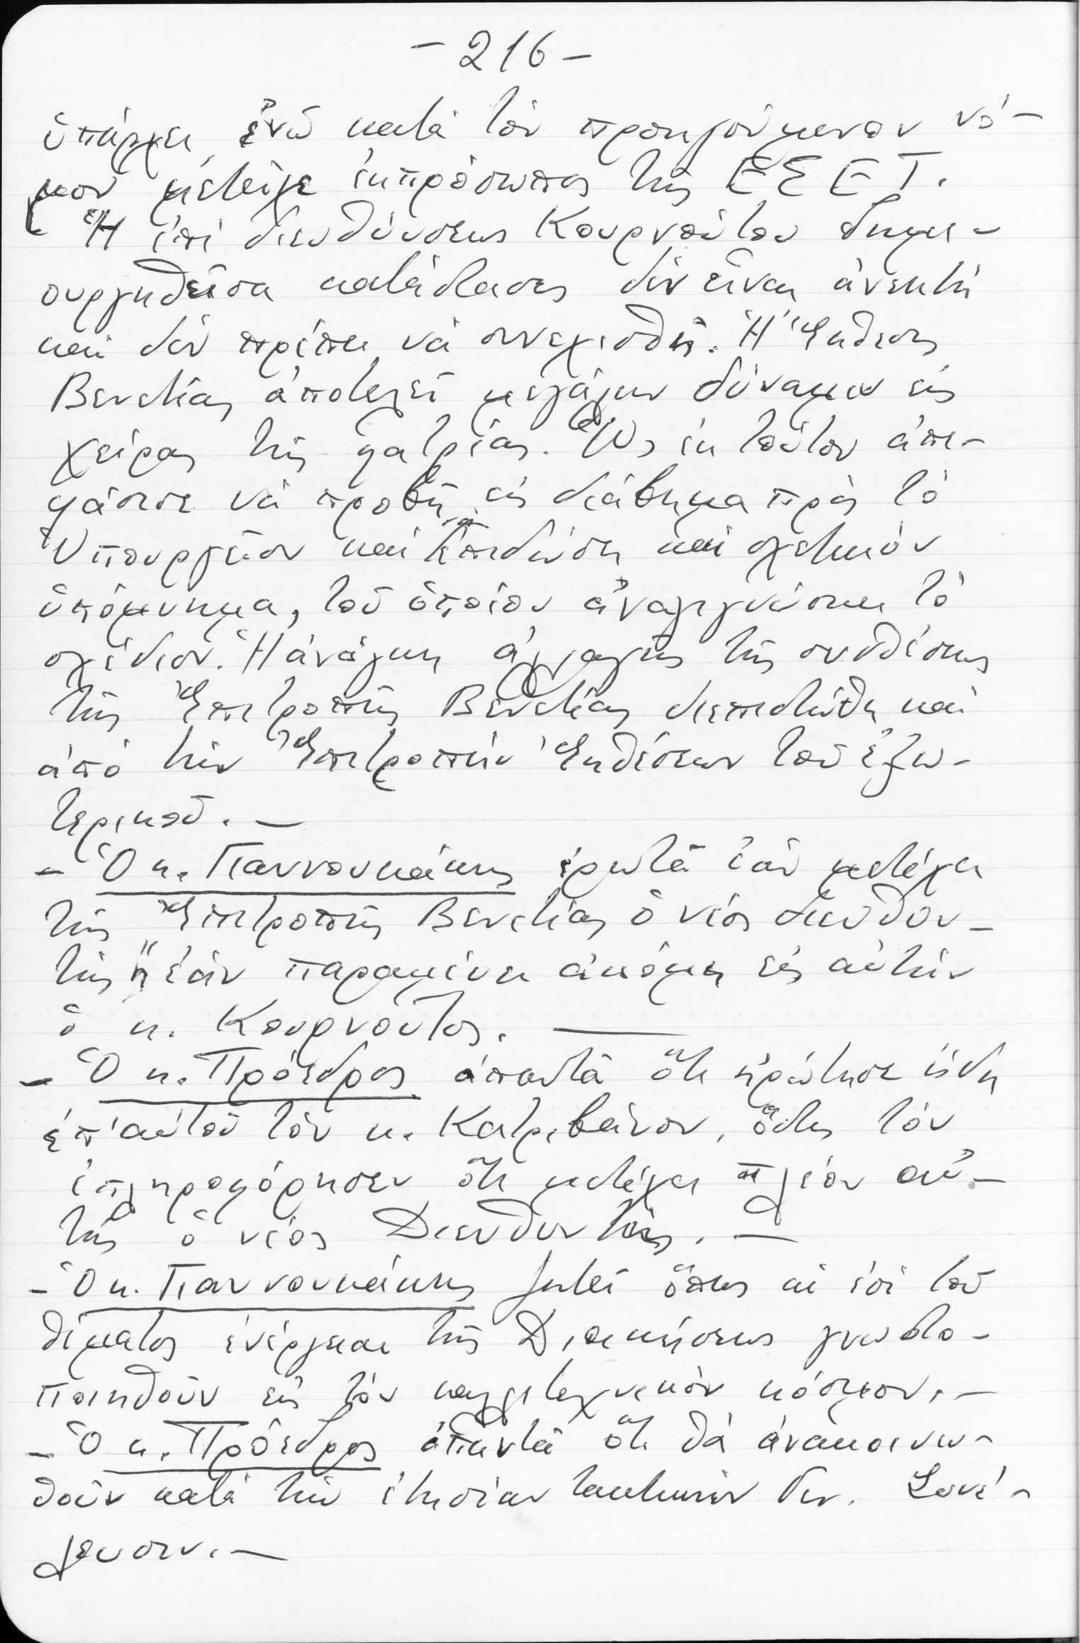 - 216 -
ὑπάρχει, ἐνῶ κατά τόν προηγούμενον νό-
μον μετεῖχε ἐκπρόσωπος τῆς ΕΣΕΤ.
Ἡ ἐπί διευθύνσεως Κουρνούτου δημι-
ουργηθεῖσα κατάστασις δέν εἶναι ἀνεκτή
καί δέν πρέπει νά συνεχισθῇ. Ἡ Ἔκθεσις
Βενετίας ἀποτελεῖ μεγάλην δύναμιν εἰς
χεῖρας τῆς φατρίας. Ὡς ἐκ τούτου ἀπε-
φάσισε νά προβῇ εἰς διάβημα πρός τό
Ὑπουργεῖον καί νά ἐπιδώσῃ καί σχετικόν
ὑπόμνημα, τοῦ ὁποίου ἀναγιγνώσκει τό
σχέδιον. Ἡ ἀνάγκη ἀλλαγῆς τῆς συνθέσεως
τῆς Ἐπιτροπῆς Βενετίας διεπιστώθη καί
ἀπό τήν Ἐπιτροπήν Ἐκθέσεων τοῦ ἐξω-
τερικοῦ. -
- Ὁ κ. Γιαννουκάκης ἐρωτᾶ ἐάν μετέχει
τῆς Ἐπιτροπῆς Βενετίας ὁ νέος διευθυν-
τής ἤ ἐάν παραμένει ἀκόμη εἰς αὐτήν
ὁ κ. Κουρνοῦτος. -
- Ὁ κ. Πρόεδρος ἀπαντᾶ ὅτι ἠρώτησε ἤδη
ἐπ' αὐτοῦ τόν κ. Κατριβάνον, ὅστις τόν
ἐπληροφόρησεν ὅτι μετέχει πλέον αὐ-
τῆς ὁ νέος Διευθυντής. -
- Ὁ κ. Γιαννουκάκης ζητεῖ ὅπως αἱ ἐπί τοῦ
θέματος ἐνέργειαι τῆς Διοικήσεως γνωστο-
ποιηθοῦν εἰς τόν καλλιτεχνικόν κόσμον. -
- Ὁ κ. Πρόεδρος ἀπαντᾶ ὅτι θά ἀνακοινω-
θοῦν κατά τήν ἐτησίαν τακτικήν Γεν. Συνέ-
λευσιν. -